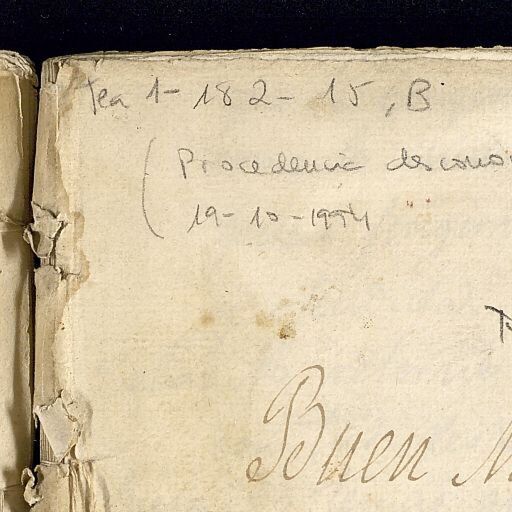 Tea 1-182-15, B
(Procedencia descono
19-10-1994
Buen